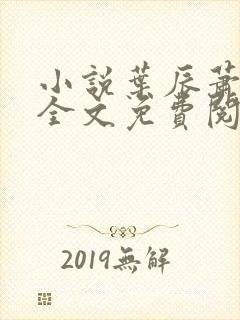 小説葉辰蕭
全文免費閱
2019無解